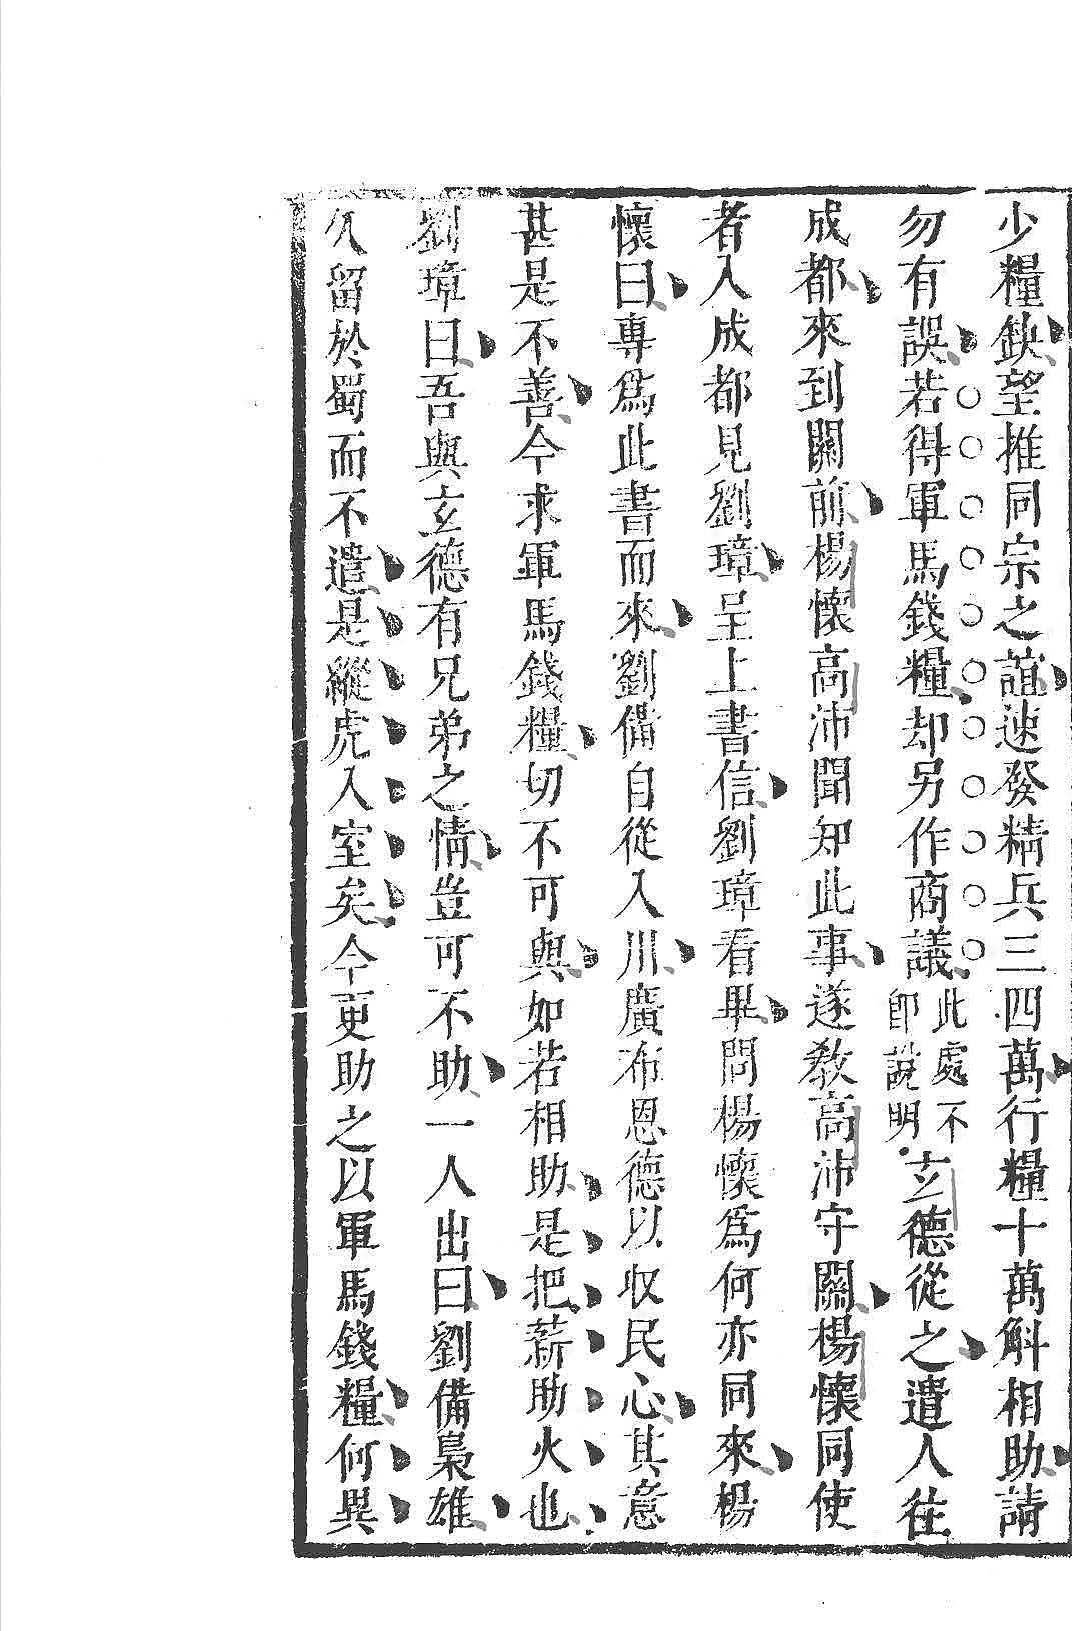 少糧缺望推同宗之誼速發精兵三四萬行糧十萬斛相助請
勿有誤若得軍馬錢糧却另作商議此處不卽說明玄德從之遣人往
成都來到關前楊懷高沛聞知此事遂教高沛守關楊懷同使
者入成都見劉璋呈上書信劉璋看畢問楊懷爲何亦同來楊
懷曰專爲此書而來劉備自從入川廣布恩德以收民心其意
甚是不善今求軍馬錢糧切不可與如若相助是把薪助火也
劉璋曰吾與玄德有兄弟之情豈可不助一人出曰劉備梟雄
久留於蜀而不遣是縱虎入室矣今更助之以軍馬錢糧何異